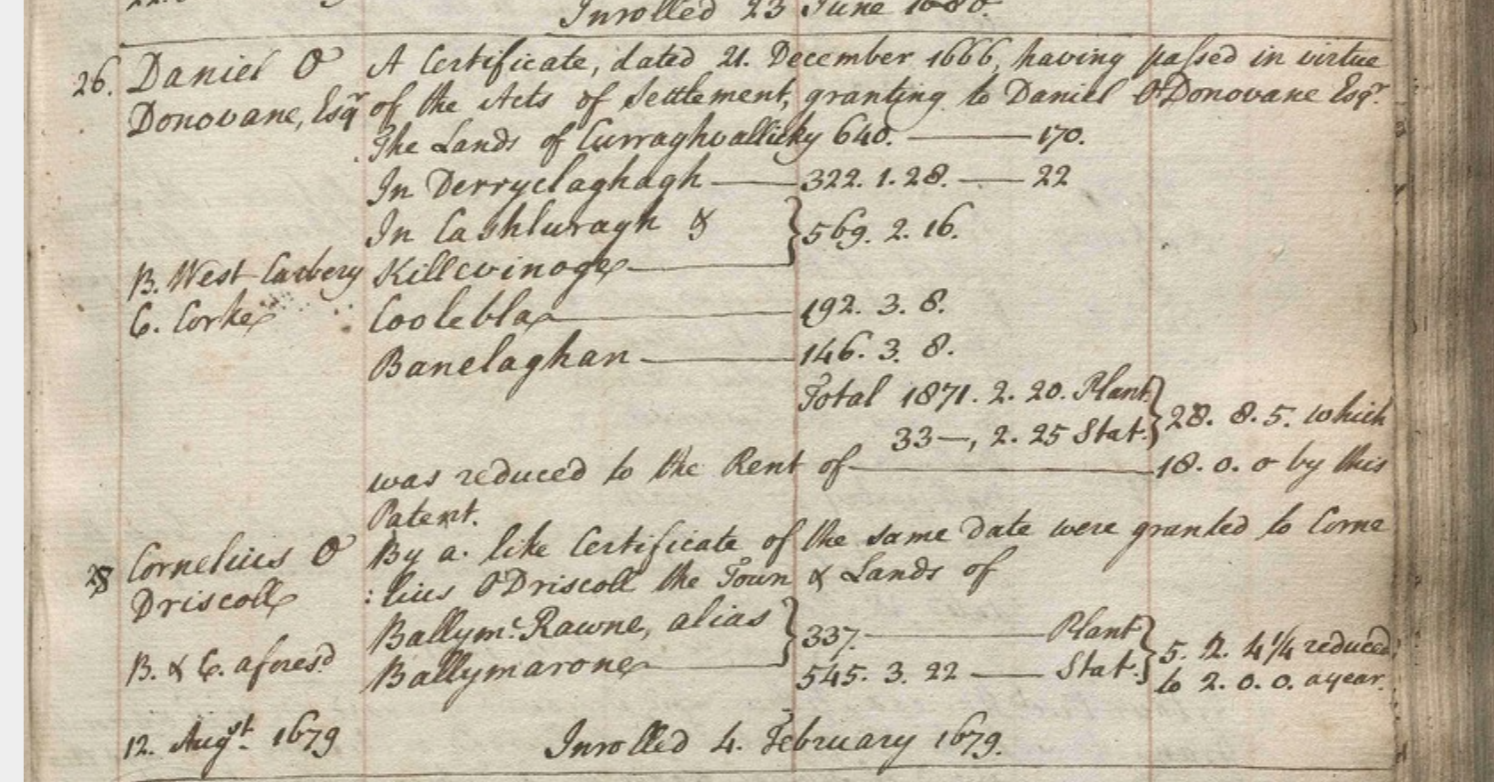 Inrolled 23 June 1680.
26. Daniel O A Certificate, dated 21. December 1666, having passed in virtue
Donovane, Esqr of the Acts of Settlement, granting to Daniel ODonovane Esqr.
The Lands of Curraghvallicky 640. —— 170.
In Derryclaghagh —— 322. 1. 28. —— 22
In Cashluragh & } 569. 2. 16.
B. West Carbery Killcvinoge ——
C. Corke Coolebla —— 192. 3. 8.
Banelaghan —— 146. 3. 8.
Total 1871. 2. 20. Plant }
33—, 2. 25 Stat. } 28. 8. 5. which
was reduced to the Rent of —— 18. 0. 0 by this
Patent.
Cornelius O By a like Certificate of the same date were granted to Corne
Driscoll :lius ODriscoll the Town & Lands of
Ballymc. Rawne, alias } 337. —— Plant }
B. & C. aforesd Ballymarone —— 545. 3. 22 —— Stat. } 5. 2. 4¼ reduced
to 2. 0. 0. a year.
12. Augst. 1679 Inrolled 4. February 1679.